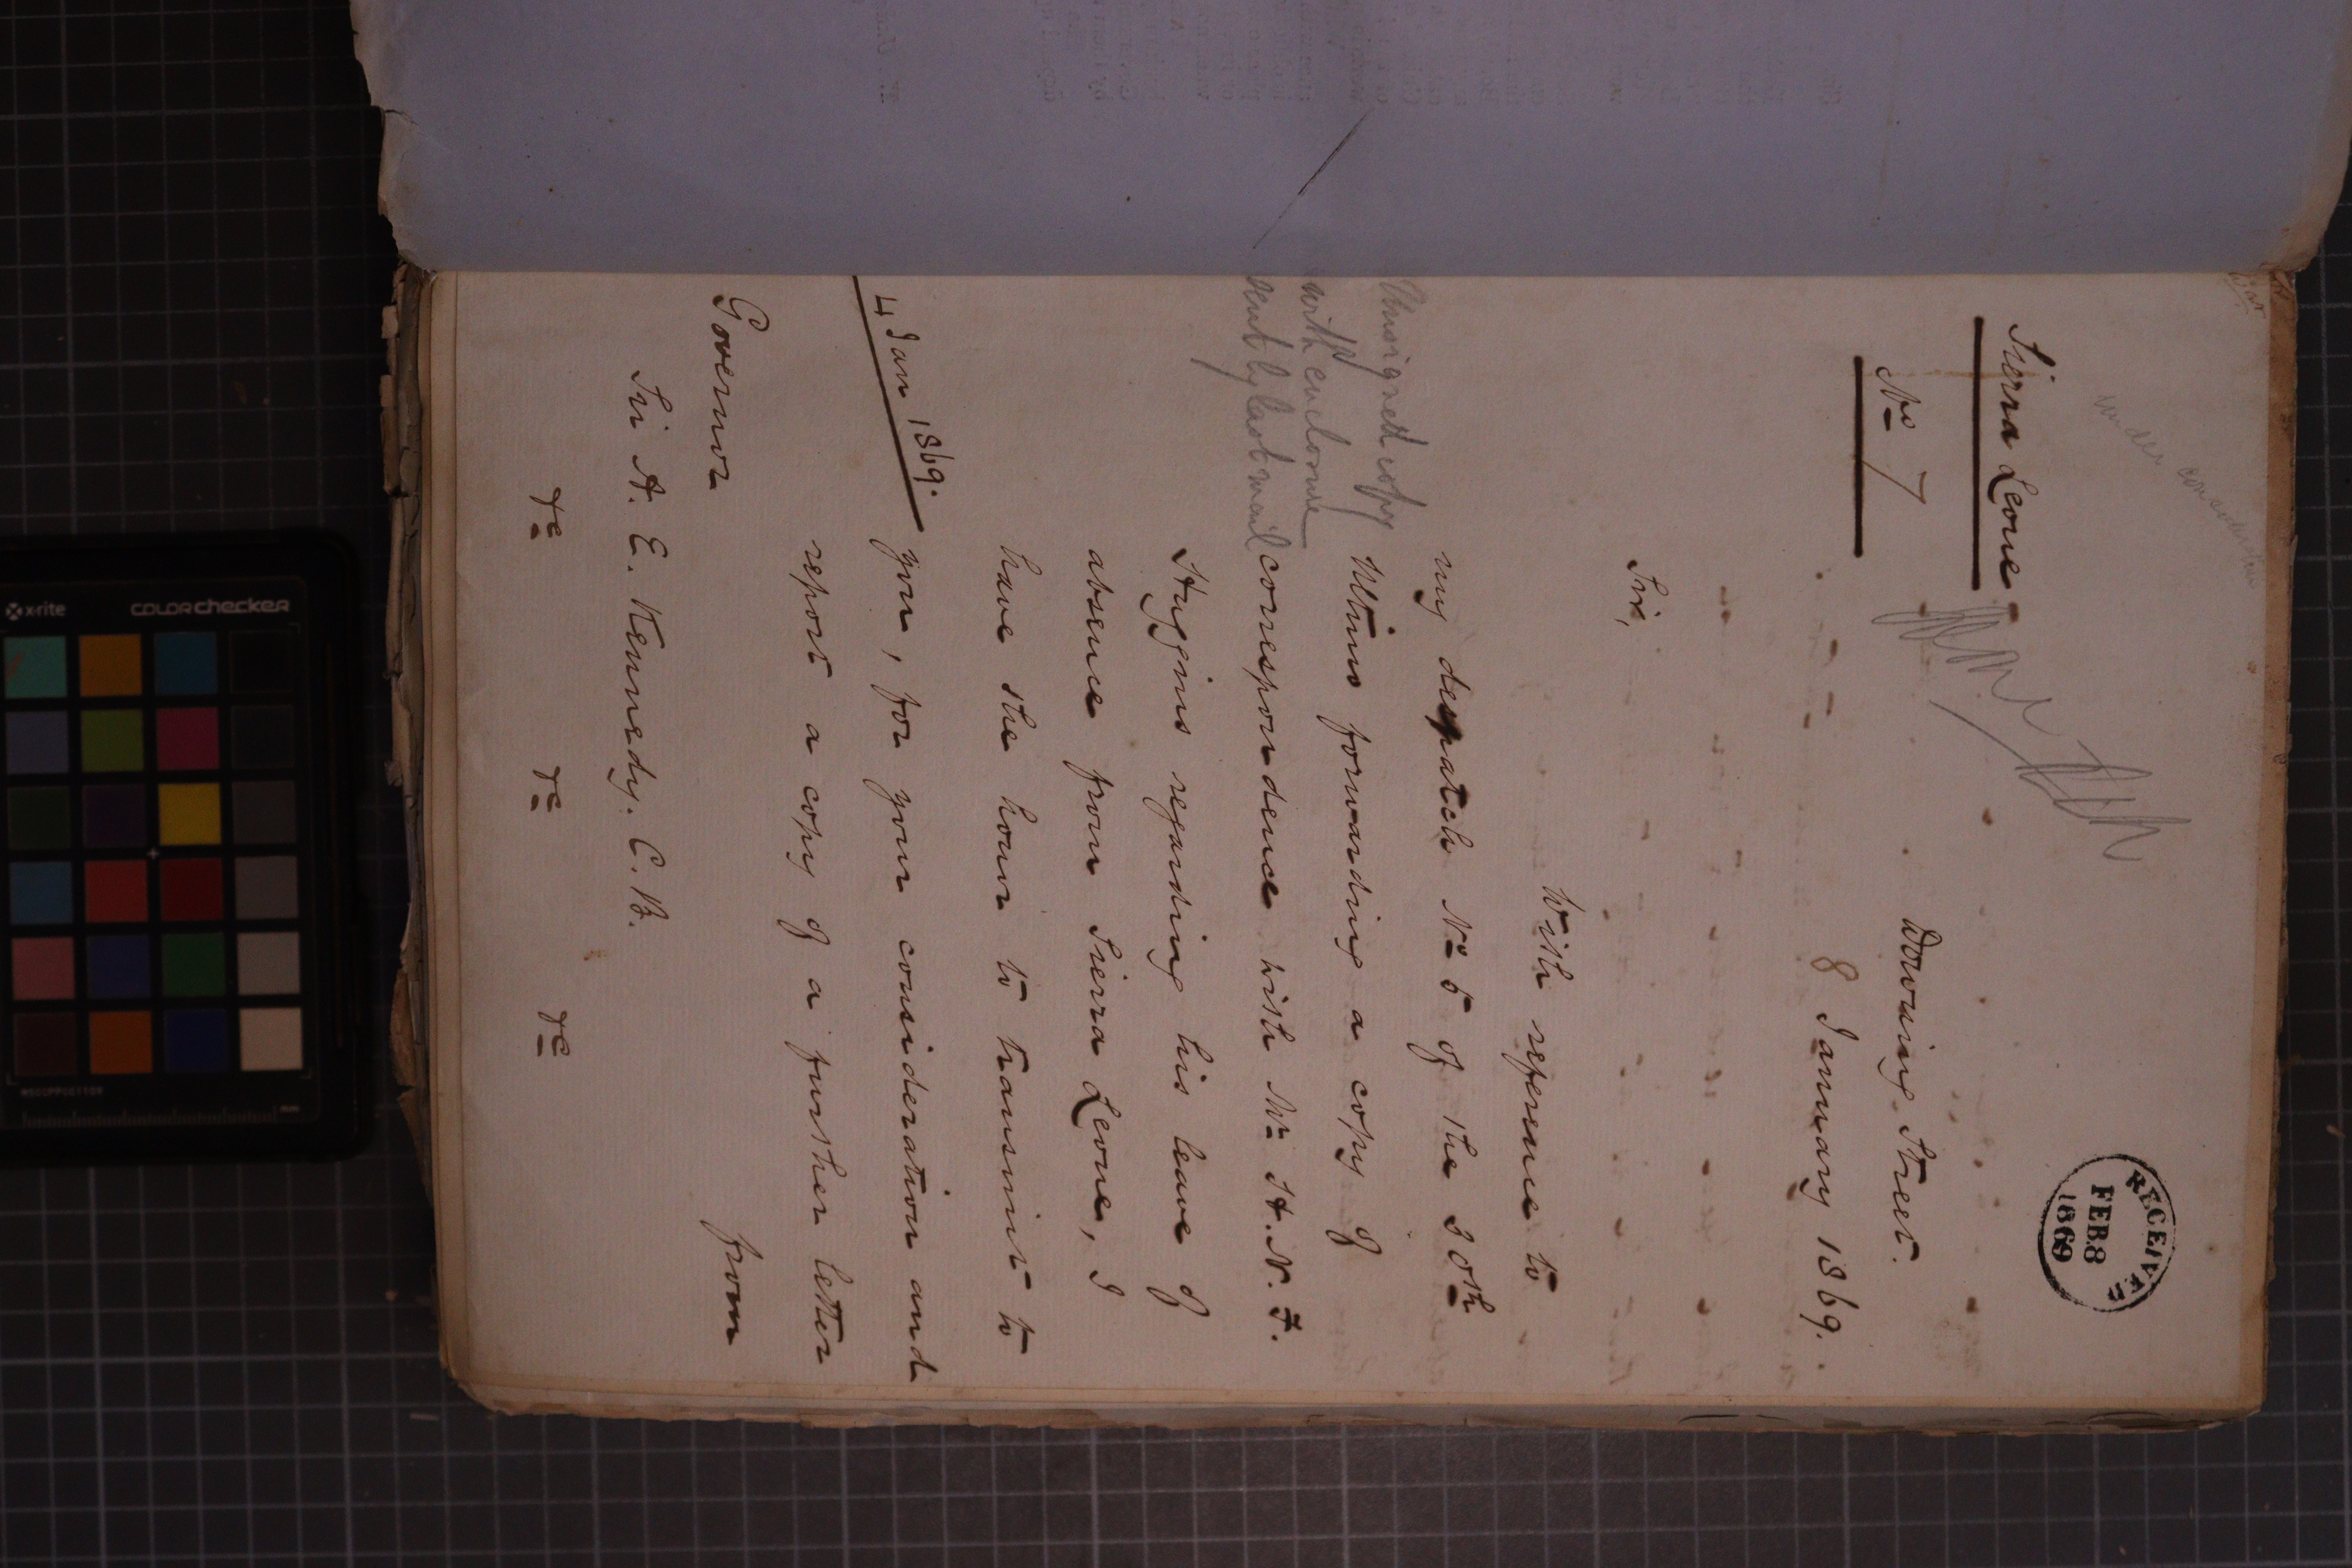 under consideration
Sierra Leone
No 7
RECEIVED
FEB 8
1869
Downing Street.
8 January 1869.
Sir,
With reference to
my despatch No 5 of the 30th
Ultimo forwarding a copy of
correspondence with Mr H. N. F.
Huggins regarding his leave of
absence from Sierra Leone, I
have the honor to transmit to
you, for your consideration and
report a copy of a further letter
from
Unsigned copy
with enclosure
sent by last mail
4 Jan 1869.
Governor
Sir A. E. Kennedy. C.B.
&c &c &c
x-rite colorchecker
MSCCPPCC1109